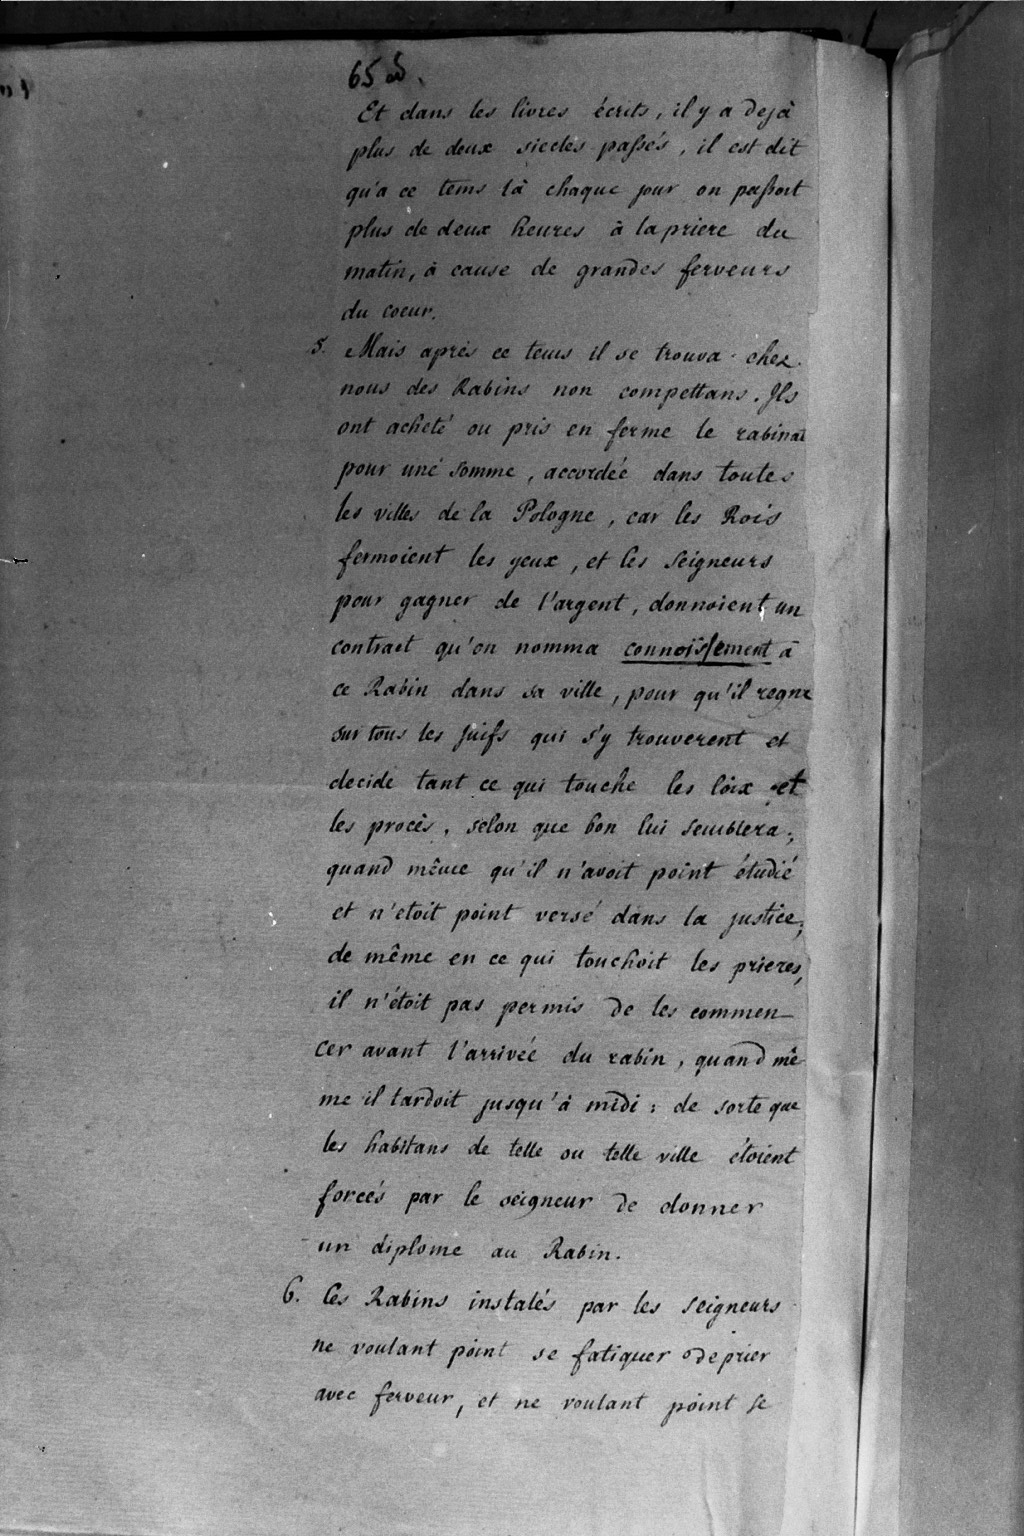 65
Et dans les livres écrits, il y a deja
plus de deux siecles passés, il est dit
qu'a ce tems là chaque jour on passoit
plus de deux heures à la priere du
matin, à cause de grandes ferveurs
du coeur.
5. Mais après ce tems il se trouva chez
nous des Rabins non compettans. Ils
ont acheté ou pris en ferme le rabinat
pour une somme, accordée dans toutes
les villes de la Pologne, car les Rois
fermoient les yeux, et les Seigneurs
pour gagner de l'argent, donnoient un
contract qu'on nomma connoissement à
ce Rabin dans sa ville, pour qu'il regne
sur tous les Juifs qui s'y trouverent et
decide tant ce qui touche les loix et
les procès, selon que bon lui semblera;
quand même qu'il n'avoit point étudié
et n'etoit point versé dans la justice;
de même en ce qui touchoit les prieres,
il n'étoit pas permis de les commen-
cer avant l'arrivée du rabin, quand mê-
me il tardoit jusqu'à midi: de sorte que
les habitans de telle ou telle ville étoient
forcés par le seigneur de donner
un diplome au Rabin.
6. Ces Rabins instalés par les Seigneurs
ne voulant point se fatiquer de prier
avec ferveur, et ne voulant point se